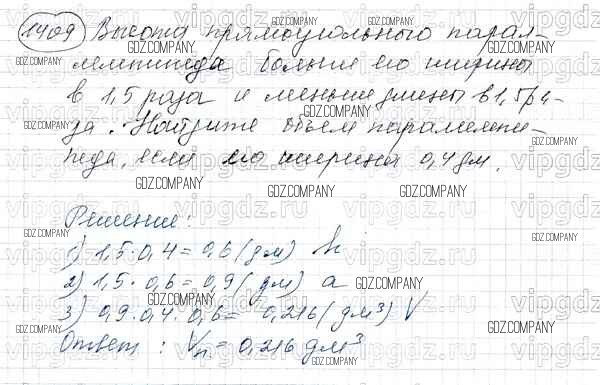 1409 Высота прямоугольного парал-
лелепипеда больше его ширины
в 1,5 раза и меньше длины в 1,5 ра-
за. Найдите объем параллелепи-
педа, если его ширина 0,4 дм.
Решение:
1) 1,5 · 0,4 = 0,6 (дм) h
2) 1,5 · 0,6 = 0,9 (дм) a
3) 0,9 · 0,4 · 0,6 = 0,216 (дм³) V
Ответ: Vп = 0,216 дм³
GDZ.COMPANY
vipgdz.ru